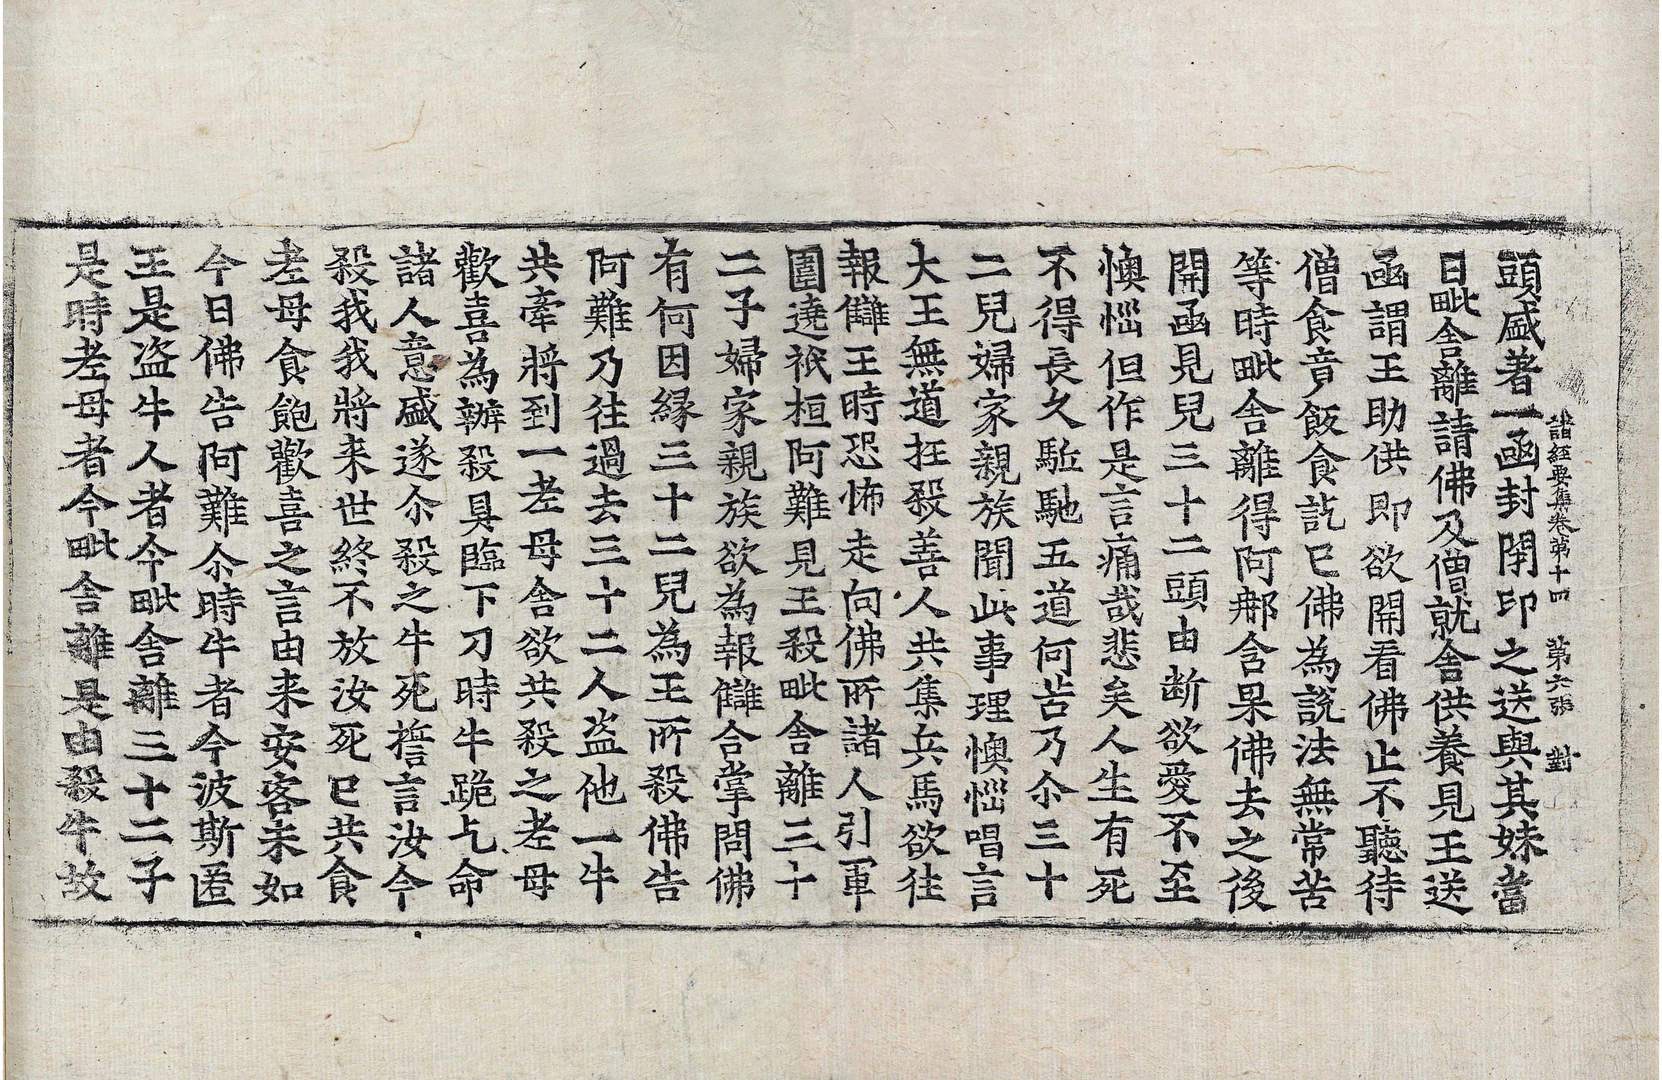 諸經要集卷第十四　第六張　對
頭盛著一函封閉印之送與其妹當
日毗舍離請佛及僧就舍供養見王送
函謂王助供即欲開看佛止不聽待
僧食竟飯食訖已佛為說法無常苦
等時毗舍離得阿那含果佛去之後
開函見兒三十二頭由断欲愛不至
懊惱但作是言痛哉悲矣人生有死
不得長久駈馳五道何苦乃尒三十
二兒婦家親族聞此事理懊惱唱言
大王無道抂殺善人共集兵馬欲往
報讎王時恐怖走向佛所諸人引軍
圍遶祇桓阿難見王殺毗舍離三十
二子婦家親族欲為報讎合掌問佛
有何因緣三十二兒為王所殺佛告
阿難乃往過去三十二人盗他一牛
共牽將到一老母舍欲共殺之老母
歡喜為辦殺具臨下刀時牛跪乞命
諸人意盛遂尒殺之牛死誓言汝今
殺我我將来世終不放汝死已共食
老母食飽歡喜之言由来安客未如
今日佛告阿難尒時牛者今波斯匿
王是盗牛人者今毗舍離三十二子
是時老母者今毗舍離是由殺牛故